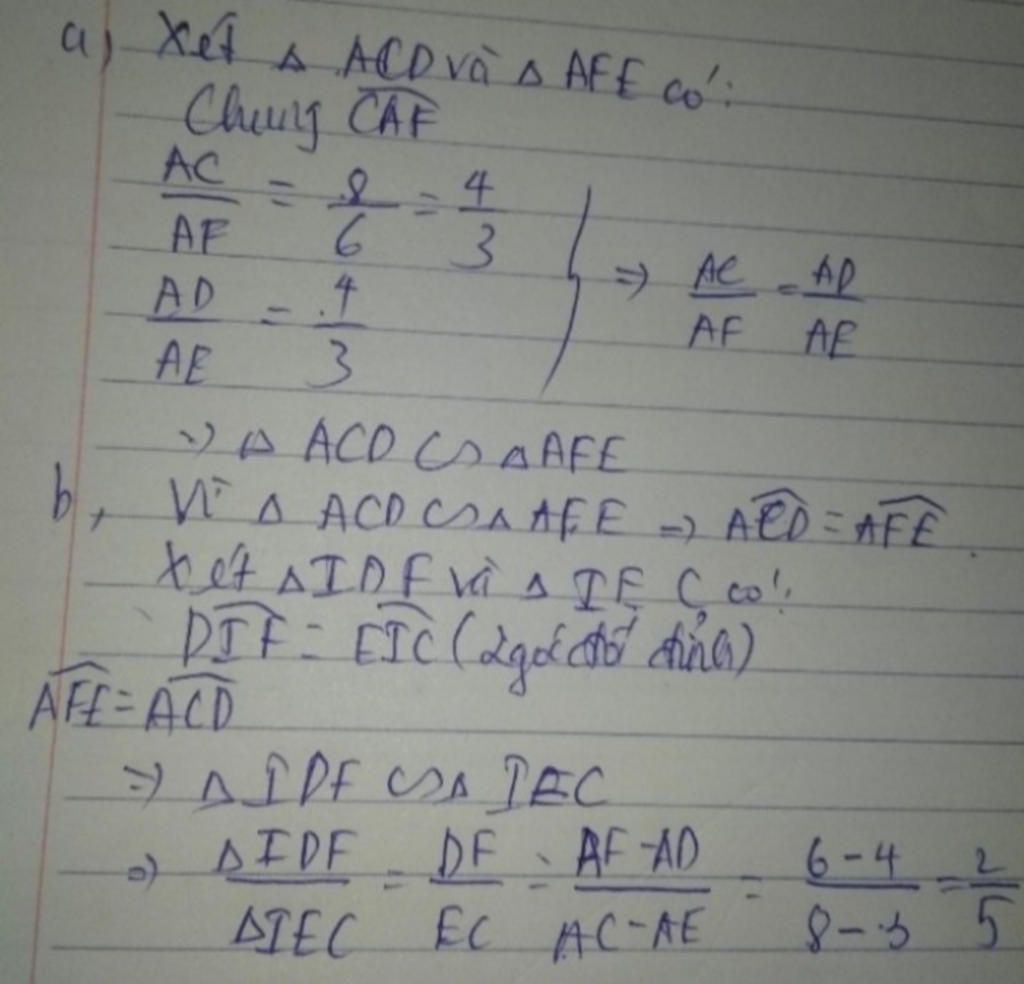 a) Xét Δ ACD và Δ AFE có:
Chung \widehat{CAF}
\frac{AC}{AF} = \frac{8}{6} = \frac{4}{3}
\frac{AD}{AE} = \frac{4}{3} } => \frac{AC}{AF} = \frac{AD}{AE}
=> Δ ACD ∽ Δ AFE
b, Vì Δ ACD ∽ Δ AFE => \widehat{ACD} = \widehat{AFE}.
Xét Δ IDF và Δ IEC có:
\widehat{DIF} = \widehat{EIC} (2 góc đối đỉnh)
\widehat{AFE} = \widehat{ACD}
=> Δ IDF ∽ Δ IEC
=> \frac{ΔIDF}{ΔIEC} = \frac{DF}{EC} = \frac{AF-AD}{AC-AE} = \frac{6-4}{8-3} = \frac{2}{5}